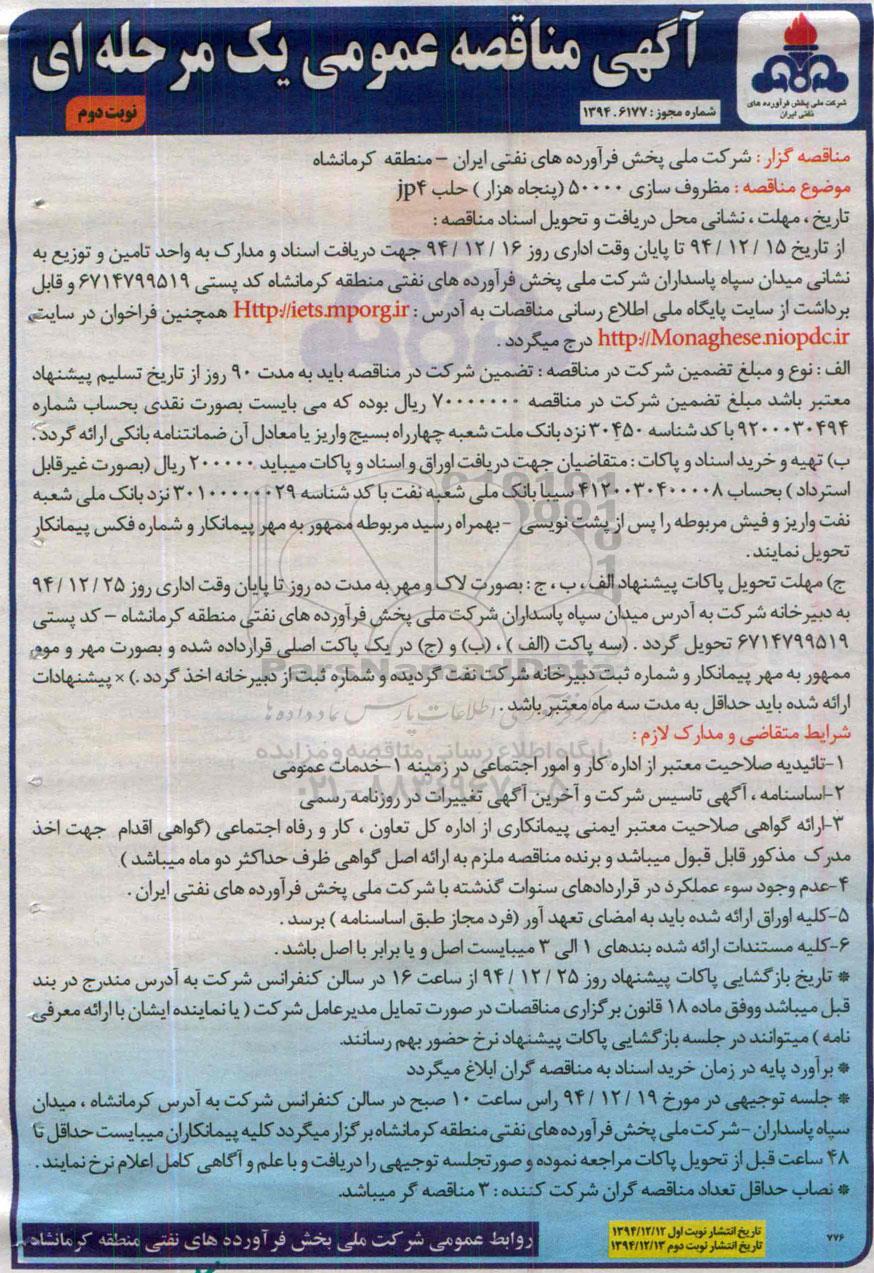 آگهی مناقصه عمومی یک مرحله ای
شرکت ملی پخش فرآورده های نفتی ایران
شماره مجوز : ۱۳۹۴.۶۱۷۷
نوبت دوم
مناقصه گزار : شرکت ملی پخش فرآورده های نفتی ایران – منطقه کرمانشاه
موضوع مناقصه : مظروف سازی ۵۰۰۰۰ (پنجاه هزار ) حلب jp۴
تاریخ ، مهلت ، نشانی محل دریافت و تحویل اسناد مناقصه :
از تاریخ ۱۵ / ۱۲ / ۹۴ تا پایان وقت اداری روز ۱۶ / ۱۲ / ۹۴ جهت دریافت اسناد و مدارک به واحد تامین و توزیع به
نشانی میدان سپاه پاسداران شرکت ملی پخش فرآورده های نفتی منطقه کرمانشاه کد پستی ۶۷۱۴۷۹۹۵۱۹ و قابل
برداشت از سایت پایگاه ملی اطلاع رسانی مناقصات به آدرس : Http://iets.mporg.ir همچنین فراخوان در سایت
http://Monaghese.niopdc.ir درج میگردد .
الف : نوع و مبلغ تضمین شرکت در مناقصه : تضمین شرکت در مناقصه باید به مدت ۹۰ روز از تاریخ تسلیم پیشنهاد
معتبر باشد مبلغ تضمین شرکت در مناقصه ۷۰۰۰۰۰۰۰ ریال بوده که می بایست بصورت نقدی بحساب شماره
۹۲۰۰۰۳۰۴۹۴ با کد شناسه ۳۰۴۵۰ نزد بانک ملت شعبه چهارراه بسیج واریز یا معادل آن ضمانتنامه بانکی ارائه گردد .
ب) تهیه و خرید اسناد و پاکات : متقاضیان جهت دریافت اوراق و اسناد و پاکات میباید ۲۰۰۰۰۰ ریال (بصورت غیرقابل
استرداد ) بحساب ۴۱۲۰۰۳۰۴۰۰۰۰۸ سیبا بانک ملی شعبه نفت با کد شناسه ۳۰۱۰۰۰۰۰۰۲۹ نزد بانک ملی شعبه
نفت واریز و فیش مربوطه را پس از پشت نویسی – بهمراه رسید مربوطه ممهور به مهر پیمانکار و شماره فکس پیمانکار
تحویل نمایند .
ج) مهلت تحویل پاکات پیشنهاد الف ، ب ، ج : بصورت لاک و مهر به مدت ده روز تا پایان وقت اداری روز ۲۵ / ۱۲ / ۹۴
به دبیرخانه شرکت به آدرس میدان سپاه پاسداران شرکت ملی پخش فرآورده های نفتی منطقه کرمانشاه – کد پستی
۶۷۱۴۷۹۹۵۱۹ تحویل گردد . (سه پاکت (الف ) ، (ب) و (ج) در یک پاکت اصلی قرارداده شده و بصورت مهر و موم
ممهور به مهر پیمانکار و شماره ثبت دبیرخانه شرکت نفت گردیده و شماره ثبت از دبیرخانه اخذ گردد .) × پیشنهادات
ارائه شده باید حداقل به مدت سه ماه معتبر باشد .
ParsNamadData
پایگاه اطلاع رسانی مناقصه و مزایده
شرایط متقاضی و مدارک لازم :
۱-تائیدیه صلاحیت معتبر از اداره کار و امور اجتماعی در زمینه ۱-خدمات عمومی
۲-اساسنامه ، آگهی تاسیس شرکت و آخرین آگهی تغییرات در روزنامه رسمی
۳-ارائه گواهی صلاحیت معتبر ایمنی پیمانکاری از اداره کل تعاون ، کار و رفاه اجتماعی (گواهی اقدام جهت اخذ
مدرک مذکور قابل قبول میباشد و برنده مناقصه ملزم به ارائه اصل گواهی ظرف حداکثر دو ماه میباشد )
۴-عدم وجود سوء عملکرد در قراردادهای سنوات گذشته با شرکت ملی پخش فرآورده های نفتی ایران .
۵-کلیه اوراق ارائه شده باید به امضای تعهد آور (فرد مجاز طبق اساسنامه ) برسد .
۶-کلیه مستندات ارائه شده بندهای ۱ الی ۳ میبایست اصل و یا برابر با اصل باشد .
* تاریخ بازگشایی پاکات پیشنهاد روز ۲۵ / ۱۲ / ۹۴ از ساعت ۱۶ در سالن کنفرانس شرکت به آدرس مندرج در بند
قبل میباشد ووفق ماده ۱۸ قانون برگزاری مناقصات در صورت تمایل مدیرعامل شرکت ( یا نماینده ایشان با ارائه معرفی
نامه ) میتوانند در جلسه بازگشایی پاکات پیشنهاد نرخ حضور بهم رسانند.
* برآورد پایه در زمان خرید اسناد به مناقصه گران ابلاغ میگردد
* جلسه توجیهی در مورخ ۱۹ / ۱۲ / ۹۴ راس ساعت ۱۰ صبح در سالن کنفرانس شرکت به آدرس کرمانشاه ، میدان
سپاه پاسداران -شرکت ملی پخش فرآورده های نفتی منطقه کرمانشاه برگزار میگردد کلیه پیمانکاران میبایست حداقل تا
۴۸ ساعت قبل از تحویل پاکات مراجعه نموده و صورتجلسه توجیهی را دریافت و با علم و آگاهی کامل اعلام نرخ نمایند .
* نصاب حداقل تعداد مناقصه گران شرکت کننده : ۳ مناقصه گر میباشد.
تاریخ انتشار نوبت اول ۱۳۹۴/۱۲/۱۲
تاریخ انتشار نوبت دوم ۱۳۹۴/۱۲/۱۳
۷۷۶
روابط عمومی شرکت ملی پخش فرآورده های نفتی منطقه کرمانشاه